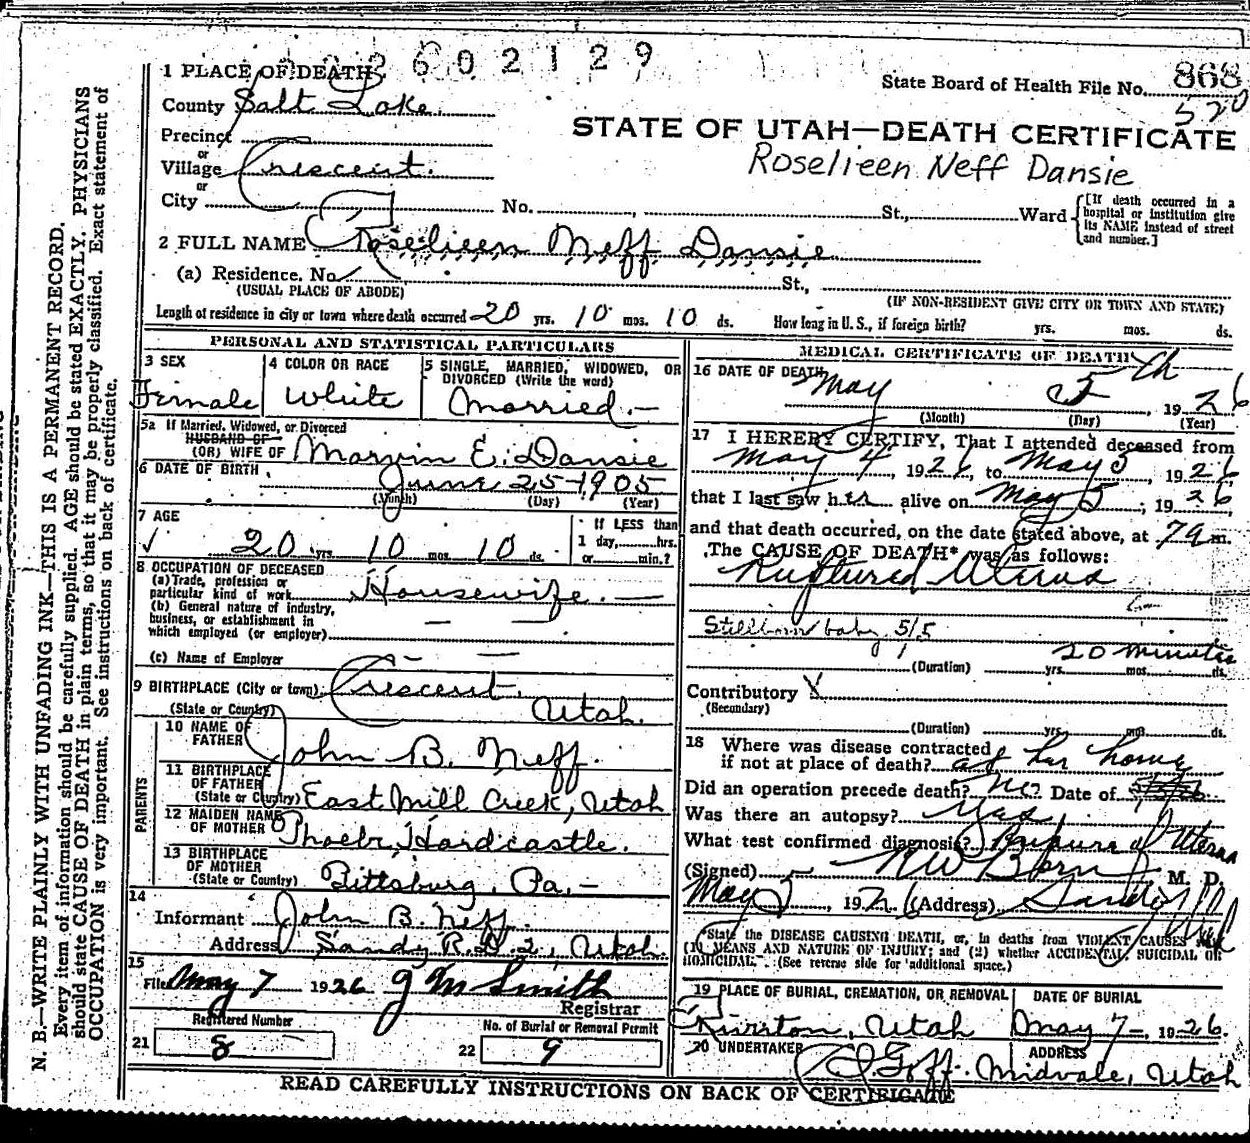 2602129
1 PLACE OF DEATH
State Board of Health File No. 868
520
County Salt Lake.
STATE OF UTAH—DEATH CERTIFICATE
Precinct
or
Roselieen Neff Dansie
Village Crescent.
or
City No. St., Ward [If death occurred in a hospital or institution give its NAME instead of street and number.]
2 FULL NAME Roselieen Neff Dansie
(a) Residence. No. St.,
(USUAL PLACE OF ABODE) (IF NON-RESIDENT GIVE CITY OR TOWN AND STATE)
Length of residence in city or town where death occurred 20 yrs. 10 mos. 10 ds. How long in U. S., if foreign birth? yrs. mos. ds.
PERSONAL AND STATISTICAL PARTICULARS
3 SEX
Female
4 COLOR OR RACE
White
5 SINGLE, MARRIED, WIDOWED, OR
DIVORCED (Write the word)
Married.—
5a If Married, Widowed, or Divorced
HUSBAND OF
(OR) WIFE OF Marvin E. Dansie
6 DATE OF BIRTH
June 25-1905
(Month) (Day) (Year)
7 AGE
√ 20 yrs. 10 mos. 10 ds.
If LESS than
1 day, hrs.
or min.?
8 OCCUPATION OF DECEASED
(a) Trade, profession or
particular kind of work Housewife.—
(b) General nature of industry,
business, or establishment in
which employed (or employer) — —
(c) Name of Employer — —
9 BIRTHPLACE (City or town) Crescent.
(State or Country) Utah.
PARENTS
10 NAME OF
FATHER John B. Neff.
11 BIRTHPLACE
OF FATHER
(State or Country) East Mill Creek, Utah
12 MAIDEN NAME
OF MOTHER Phoebe Hardcastle.
13 BIRTHPLACE
OF MOTHER
(State or Country) Pittsburg, Pa,—
14
Informant John B. Neff.
Address Sandy R.D. 2, Utah.
15
Filed May 7 1926 J M Smith
Registrar
Registered Number
21 8
No. of Burial or Removal Permit
22 9
MEDICAL CERTIFICATE OF DEATH
16 DATE OF DEATH
May 5th, 1926
(Month) (Day) (Year)
17 I HEREBY CERTIFY, That I attended deceased from
May 4 1926, to May 5, 1926
that I last saw her alive on May 5, 1926
and that death occurred, on the date stated above, at 7 a m.
The CAUSE OF DEATH* was as follows:
Ruptured Uterus
Stillborn baby 5/5
20 minutes
(Duration) yrs. mos. ds.
Contributory X
(Secondary)
(Duration) yrs. mos. ds.
18 Where was disease contracted
if not at place of death? at her home
Did an operation precede death? no? Date of
Was there an autopsy? yes
What test confirmed diagnosis? Rupture of Uterus
(Signed) M. D.
May 5, 1926 (Address) Sandy Utah
*State the DISEASE CAUSING DEATH, or, in deaths from VIOLENT CAUSES
(1) MEANS AND NATURE OF INJURY; and (2) whether ACCIDENTAL, SUICIDAL OR
HOMICIDAL. (See reverse side for additional space.)
19 PLACE OF BURIAL, CREMATION, OR REMOVAL
DATE OF BURIAL
Utah May 7—, 1926.
20 UNDERTAKER
ADDRESS
Goff. Midvale, Utah
READ CAREFULLY INSTRUCTIONS ON BACK OF CERTIFICATE
N. B.—WRITE PLAINLY WITH UNFADING INK—THIS IS A PERMANENT RECORD.
Every item of information should be carefully supplied. AGE should be stated EXACTLY. PHYSICIANS
should state CAUSE OF DEATH in plain terms, so that it may be properly classified. Exact statement of
OCCUPATION is very important. See instructions on back of certificate.